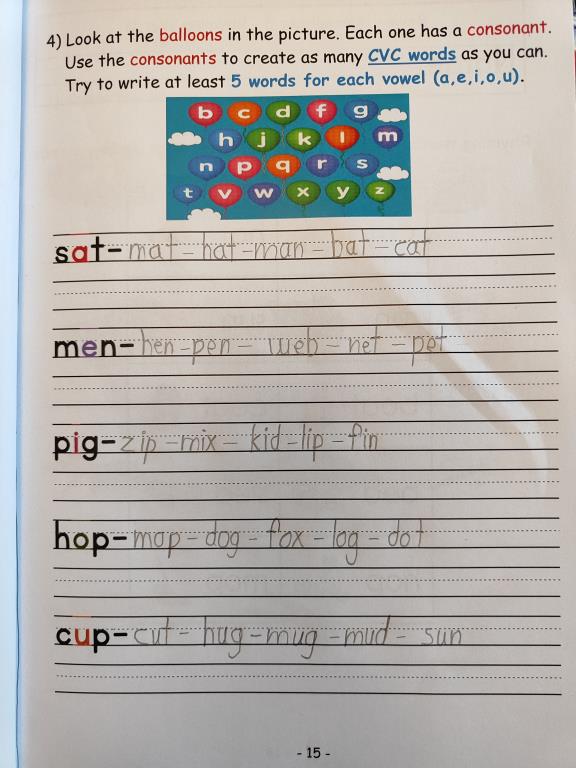 4) Look at the balloons in the picture. Each one has a consonant.
Use the consonants to create as many CVC words as you can.
Try to write at least 5 words for each vowel (a,e,i,o,u).
b c d f g
h j k l m
n p q r s
t v w x y z
sat- mat - hat - man - bat - cat
men- hen - pen - web - net - pet
pig- zip - mix - kid - lip - fin
hop- mop - dog - fox - log - dot
cup- cut - hug - mug - mud - sun
- 15 -